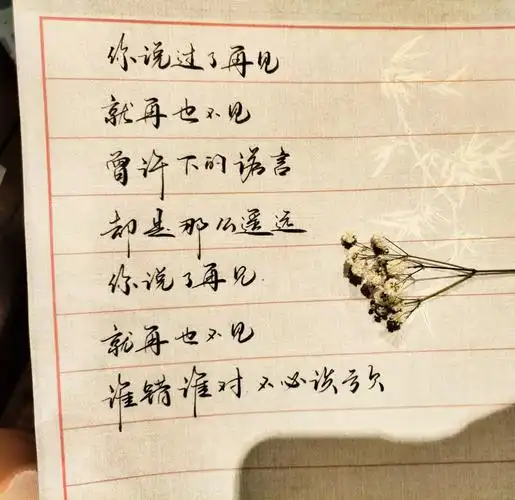 你说过了再见
就再也不见
曾许下的诺言
却是那么遥远
你说了再见
就再也不见
谁错谁对不必谈亏欠